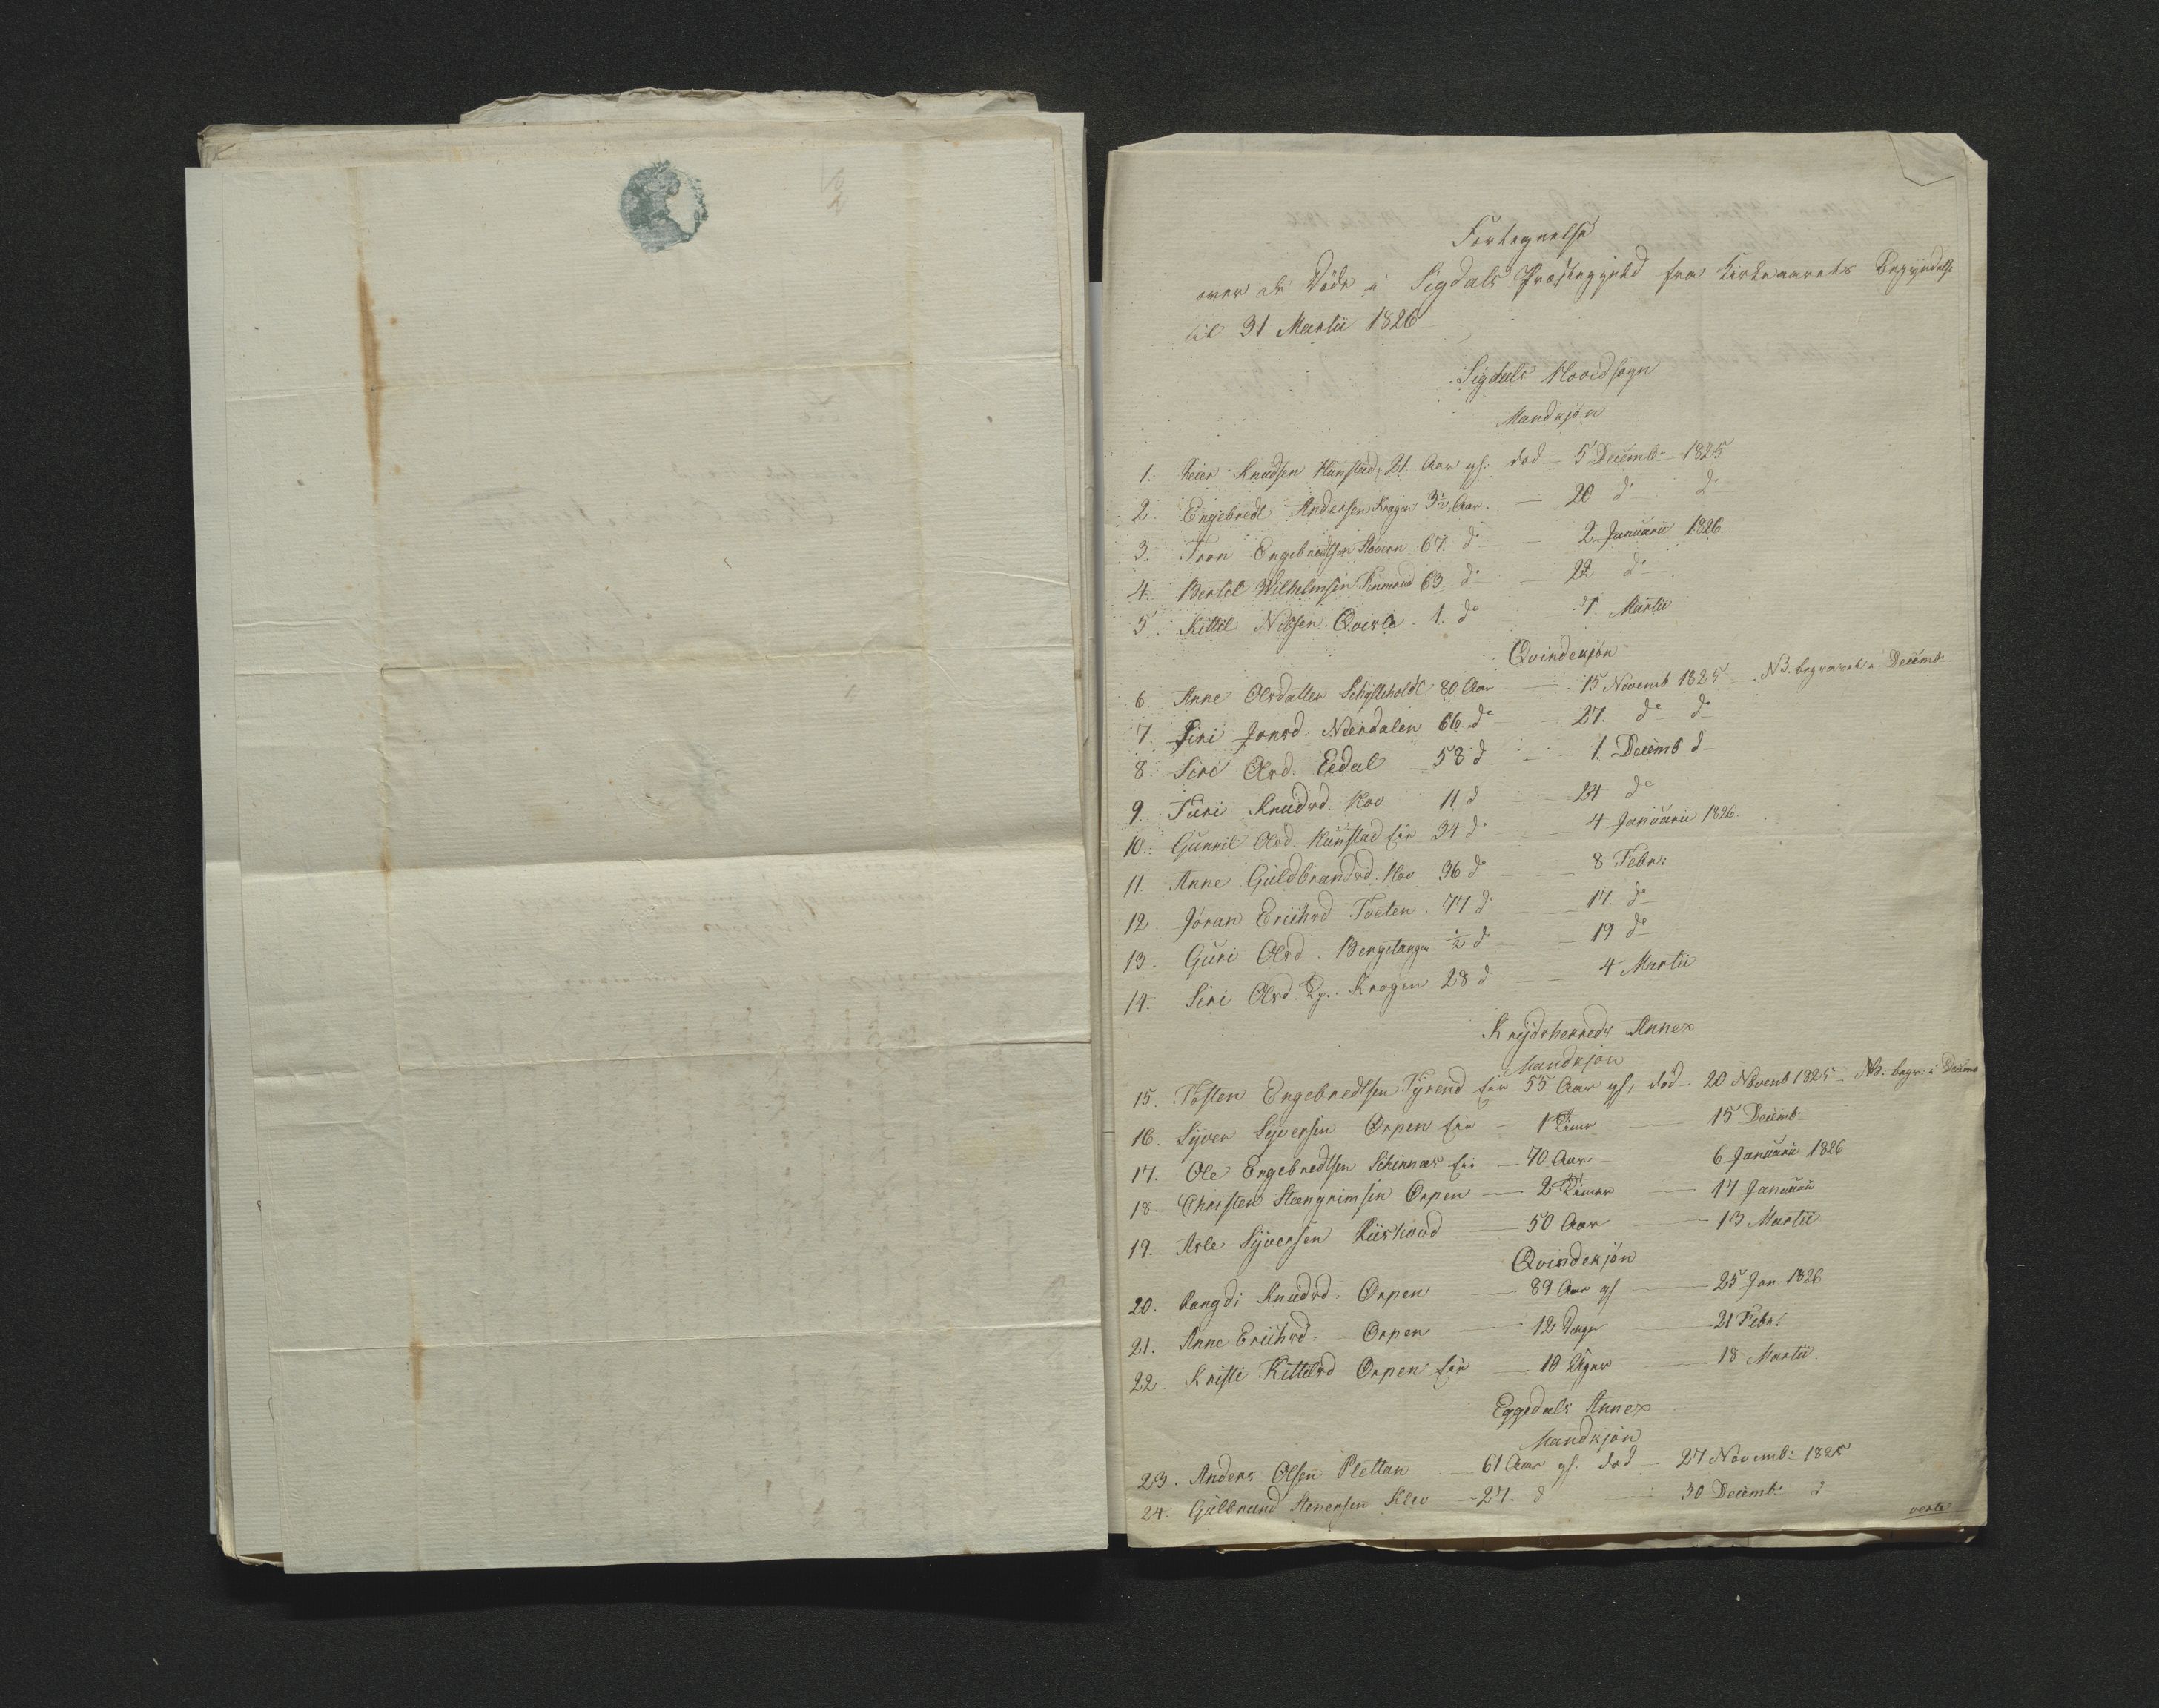 Fortegnelse
over de Döde i Sigdals Præstegjeld fra Kirkeaarets Begyndelse
til 31 Martii 1826
Sigdals Hovedsogn
Mandkjön
1. Knudsen Hunstad, 21 Aar gl. död 5 Decemb. 1825
2. Engebredt Andersen Kragen 3½ Aar. — 20 do do
3. Tron Engebredtsen 67. do — 2 Januarii 1826
4. Bertil Wilhelmsen 63 do — 22 do
5. Kittil Nilsen Qvisle 1. do 7. Martii
Qvindekjön
6. Anne Olsdatter 80 Aar — 15 Novemb 1825 NB. begravet i Decemb.
7. Siri Jonsd. Neerdalen 66 do — 27. do do
8. Siri Olsd. Eedal — 58 d — 1. Decemb d
9. Turi Knudsd. Hov 11 d — 24 do
10. Gunnil Olsd. Hunstad eie 34 d. — 4 Januarii 1826
11. Anne Guldbrandsd. Hov 36 do — 8 Febr:
12. Jöran Erichsd Tveten. 77 d. — 17. do
13. Guri Olsd. Bergetangen ½ d — 19 do
14. Siri Olsd. Kragen 28 d — 4 Martii
Krydsherreds Annex
Mandkjön
15. Tosten Engebredtsen eie 55 Aar gl, död 20 Novemb 1825 — NB. begr. i Decemb
16. Syver Syversen Orpen eie — 1 Time — 15 Decemb.
17. Ole Engebredtsen Schinnes eie — 70 Aar — 6 Januarii 1826
18. Christen Steengrimsen Orpen — 2 Timer — 17 Januarii
19. Asle Syversen Riishovd — 50 Aar — 13 Martii
Qvindekjön
20. Rangdi Knudsd. Orpen — 89 Aar gl — 25 Jan. 1826
21. Anne Erichsd. Orpen — 12 Dage — 21 Febr:
22 Kristi Kittelsd Orpen eie — 10 Uger — 18 Martii
Eggedals Annex
Mandkjön
23. Anders Olsen Plettan — 61 Aar gl. död — 27 Novemb: 1825
24. Gulbrand Steensen Klev — 27. d — 30 Decemb: d
verte